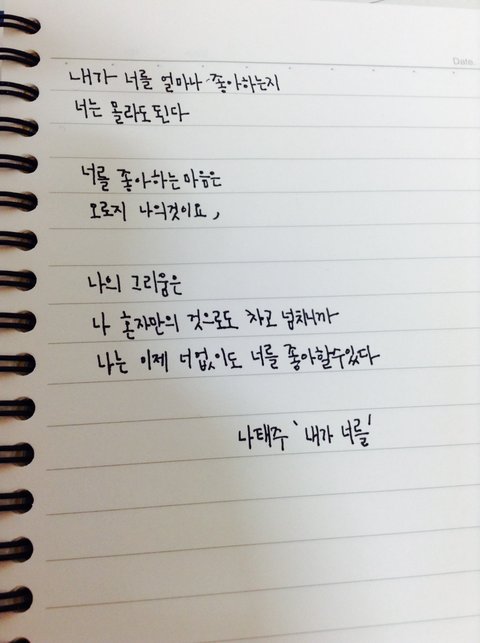 Date.
내가 너를 얼마나 좋아하는지
너는 몰라도 된다
너를 좋아하는 마음은
오로지 나의것이요,
나의 그리움은
나 혼자만의 것으로도 차고 넘치니까
나는 이제 너없이도 너를 좋아할수있다
나태주 '내가 너를'